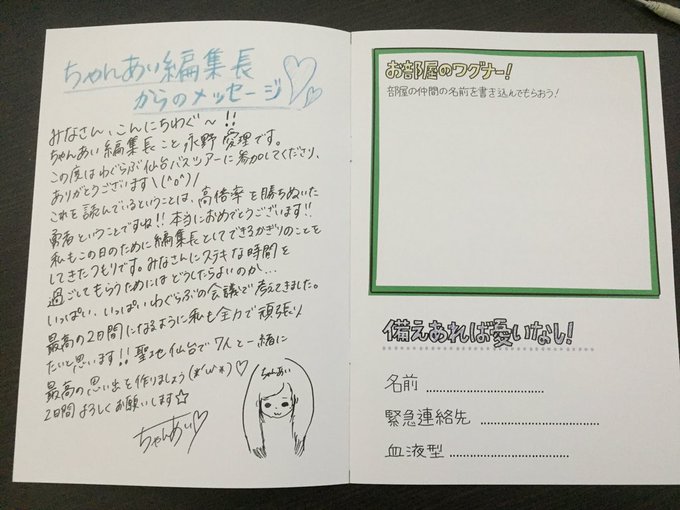 ちゃんあい編集長
からのメッセージ♡
みなさん、こんにちわぐ〜!!
ちゃんあい編集長こと、永野愛理です。
この度はわぐらぶ仙台バスツアーに参加してくださり、
ありがとうございます\(^o^)/
これを読んでいるということは、高倍率を勝ちぬいた
勇者ということですね!!本当におめでとうございます!!
私もこの日のために編集長としてできるかぎりのことを
してきたつもりです。みなさんにステキな時間を
過ごしてもらうためにはどうしたらよいのか…
いっぱい、いっぱいわぐらぶの会議で考えてきました。
最高の2日間になるように私も全力で頑張り
たいと思います!!聖地仙台で7人と一緒に
最高の思い出を作りましょう(*'ω'*)♡
2日間よろしくお願いします☆
ちゃんあい♡
ちゃんあい
お部屋のワグナー!
部屋の仲間の名前を書き込んでもらおう!
備えあれば憂いなし!
名前
緊急連絡先
血液型